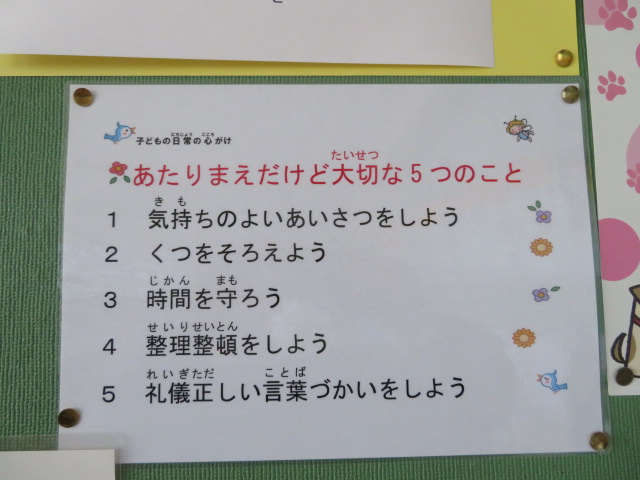 子どもの日常の心がけ
あたりまえだけど大切な5つのこと
1 気持ちのよいあいさつをしよう
2 くつをそろえよう
3 時間を守ろう
4 整理整頓をしよう
5 礼儀正しい言葉づかいをしよう